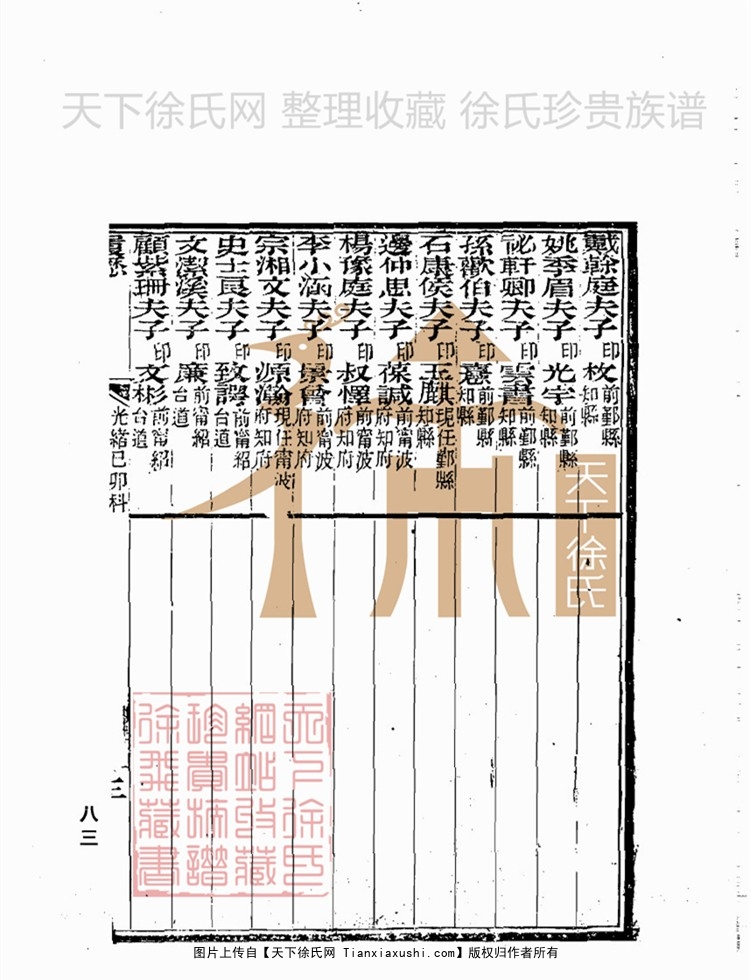 天下徐氏网 整理收藏 徐氏珍贵族谱
戴餘庭夫子印枚前鄞縣知縣
姚季眉夫子印光宇前鄞縣知縣
祕軒卿夫子印雲書前鄞縣知縣
孫歡伯夫子印憙前鄞縣知縣
石康侯夫子印玉麒現任鄞縣知縣
邊仲思夫子印葆諴前甯波府知府
楊豫庭夫子印叔懌前甯波府知府
李小涵夫子印景曾前甯波府知府
宗湘文夫子印源瀚現任甯波府知府
史士良夫子印致諤前甯紹台道
文潔溪夫子印廉前甯紹台道
顧紫珊夫子印文彬前甯紹台道
光緒己卯科
三
八三
天下徐氏
天下徐氏網站收藏珍貴族譜徐飛藏書
图片上传自【天下徐氏网 Tianxiaxushi.com】版权归作者所有